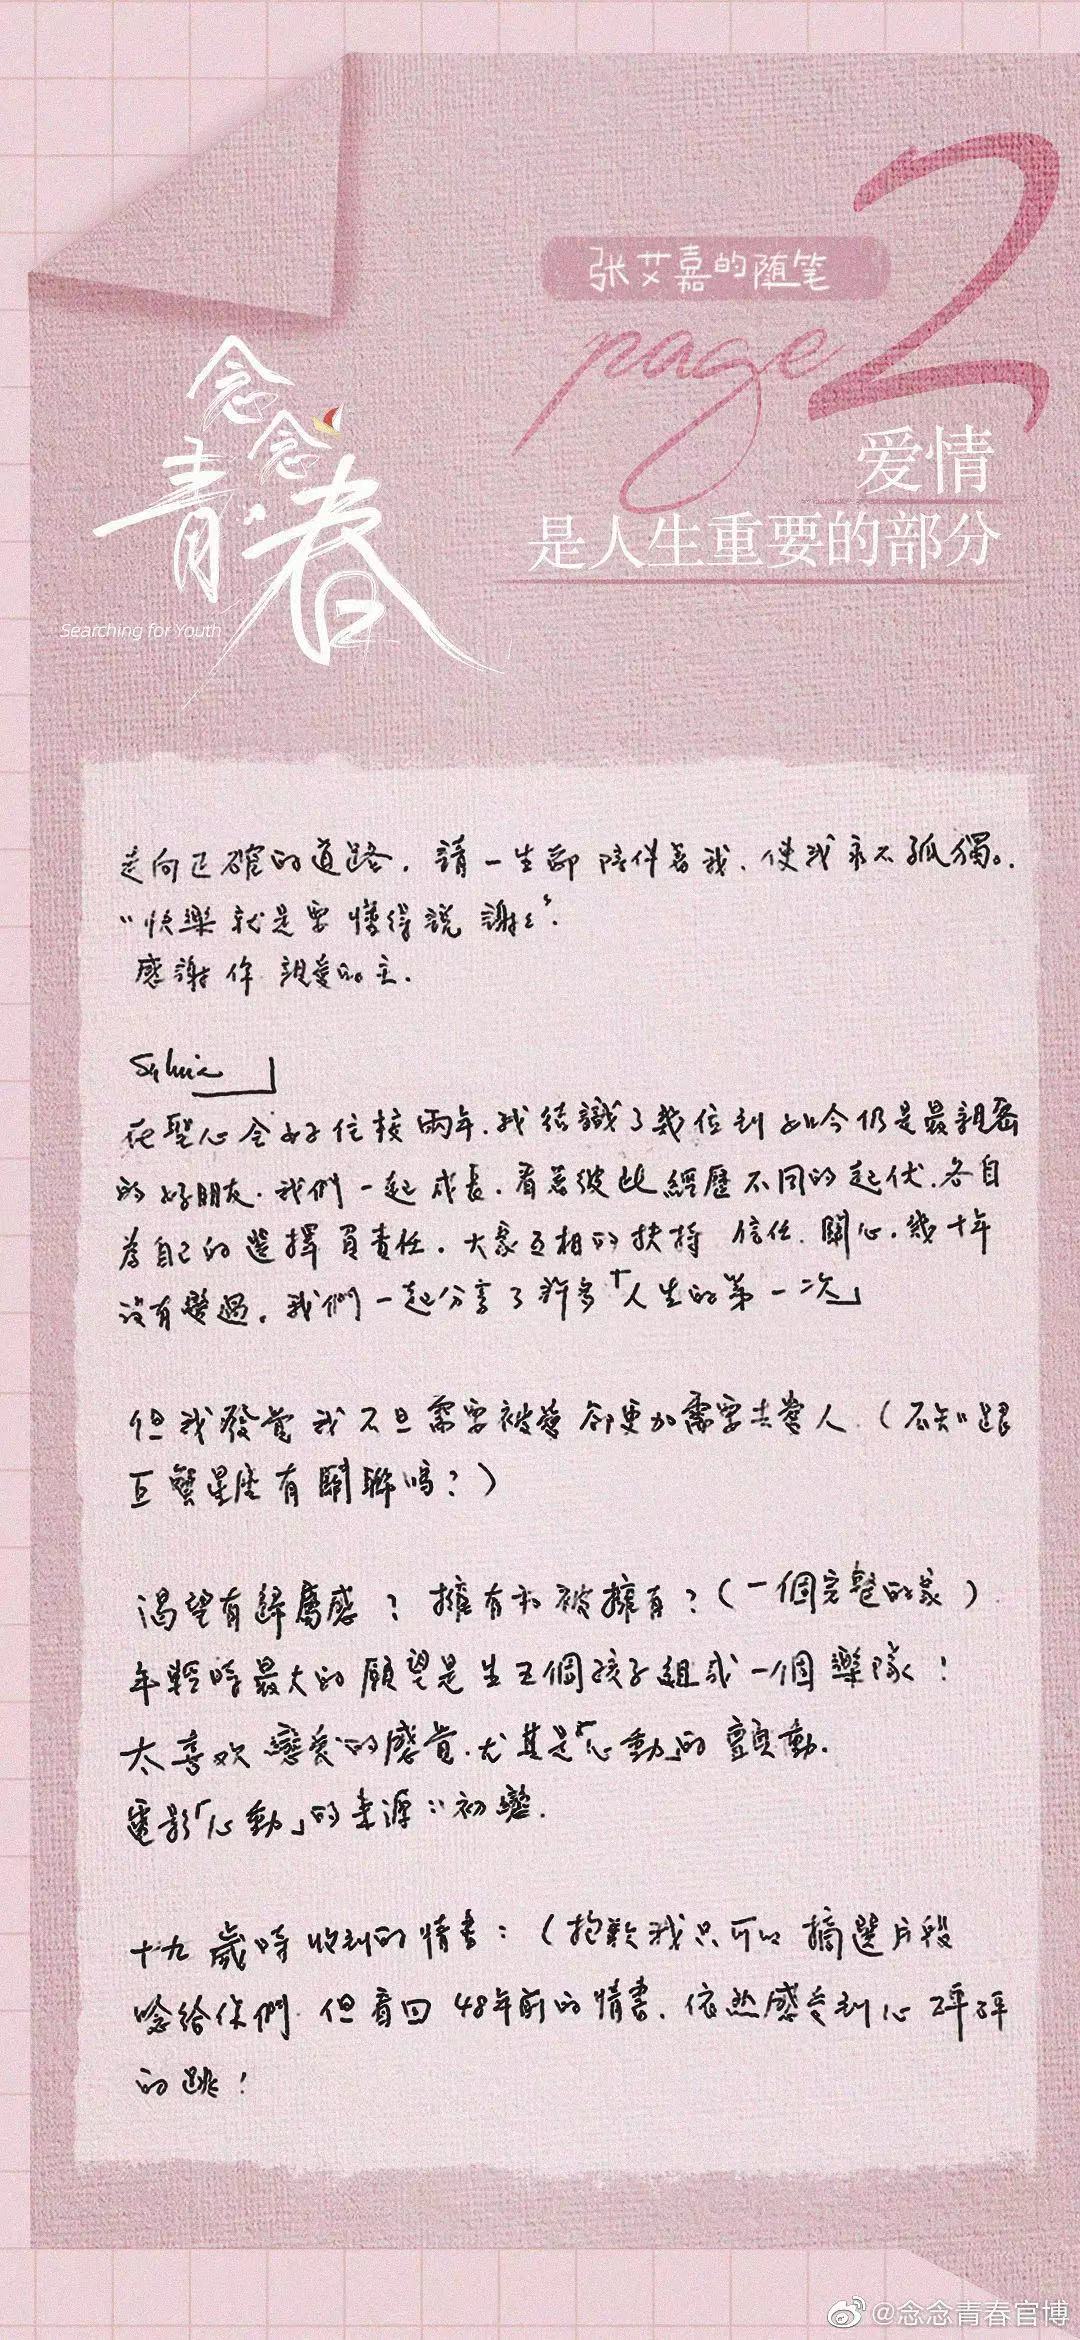 张艾嘉的随笔
page 2
念念青春
Searching for Youth
爱情
是人生重要的部分
走向正確的道路，請一生都陪伴著我，使我永不孤獨。
"快樂就是要懂得說謝謝"。
感謝你 親愛的主.
Sylvia
在聖心女子住校兩年，我結識了幾位到如今仍是最親密
的好朋友。我們一起成長，看著彼此經歷不同的起伏，各自
為自己的選擇負責任。大家互相的扶持 信任、關心，幾十年
沒有變過。我們一起分享了許多「人生的第一次」
但我發覺我不但需要被愛 卻更加需要去愛人（不知跟
巨蟹星座有關聯嗎？）
渴望有歸屬感？擁有和被擁有？（一個完整的家）
年輕時最大的願望是生五個孩子組成一個樂隊！
太喜歡戀愛的感覺，尤其是「心動」的顫動.
電影「心動」的來源：初戀.
十九歲時收到的情書：（抱歉我只可以摘選片段
唸給你們 但看回48年前的情書，依然感受到心砰砰
的跳！
@念念青春官博